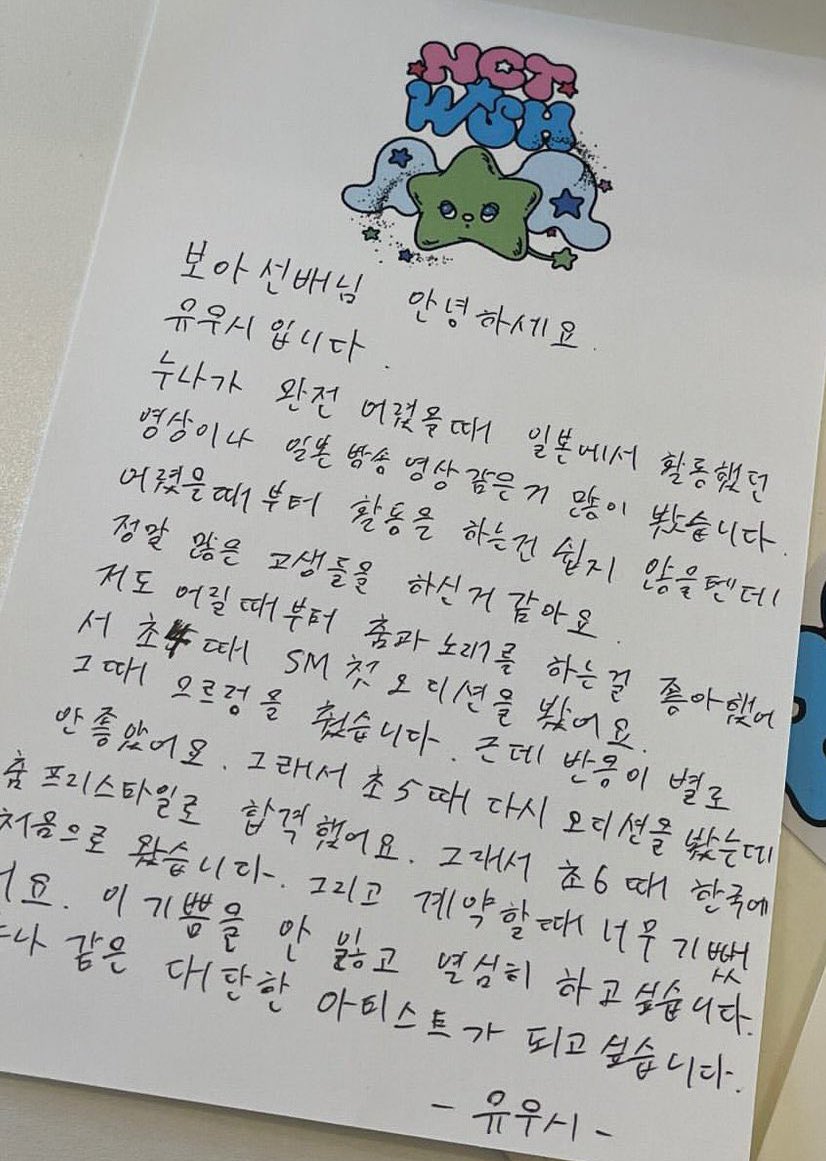 NCT
WISH
보아선배님 안녕하세요.
유우시입니다.
누나가 완전 어렸을때 일본에서 활동했던
영상이나 일본 방송 영상 같은거 많이 봤습니다.
어렸을때부터 활동을 하는건 쉽지 않을텐데
정말 많은 고생들을 하신거 같아요.
저도 어릴때부터 춤과 노래를 하는걸 좋아했어
서 초4때 SM 첫 오디션을 봤어요.
그때 으르렁을 췄습니다. 근데 반응이 별로
안 좋았어요. 그래서 초5때 다시 오디션을 봤는데
춤 프리스타일로 합격했어요. 그래서 초6때 한국에
처음으로 왔습니다. 그리고 계약할때 너무 기뻤
어요. 이 기쁨을 안 잃고 열심히 하고싶습니다.
누나 같은 대단한 아티스트가 되고싶습니다.
- 유우시 -